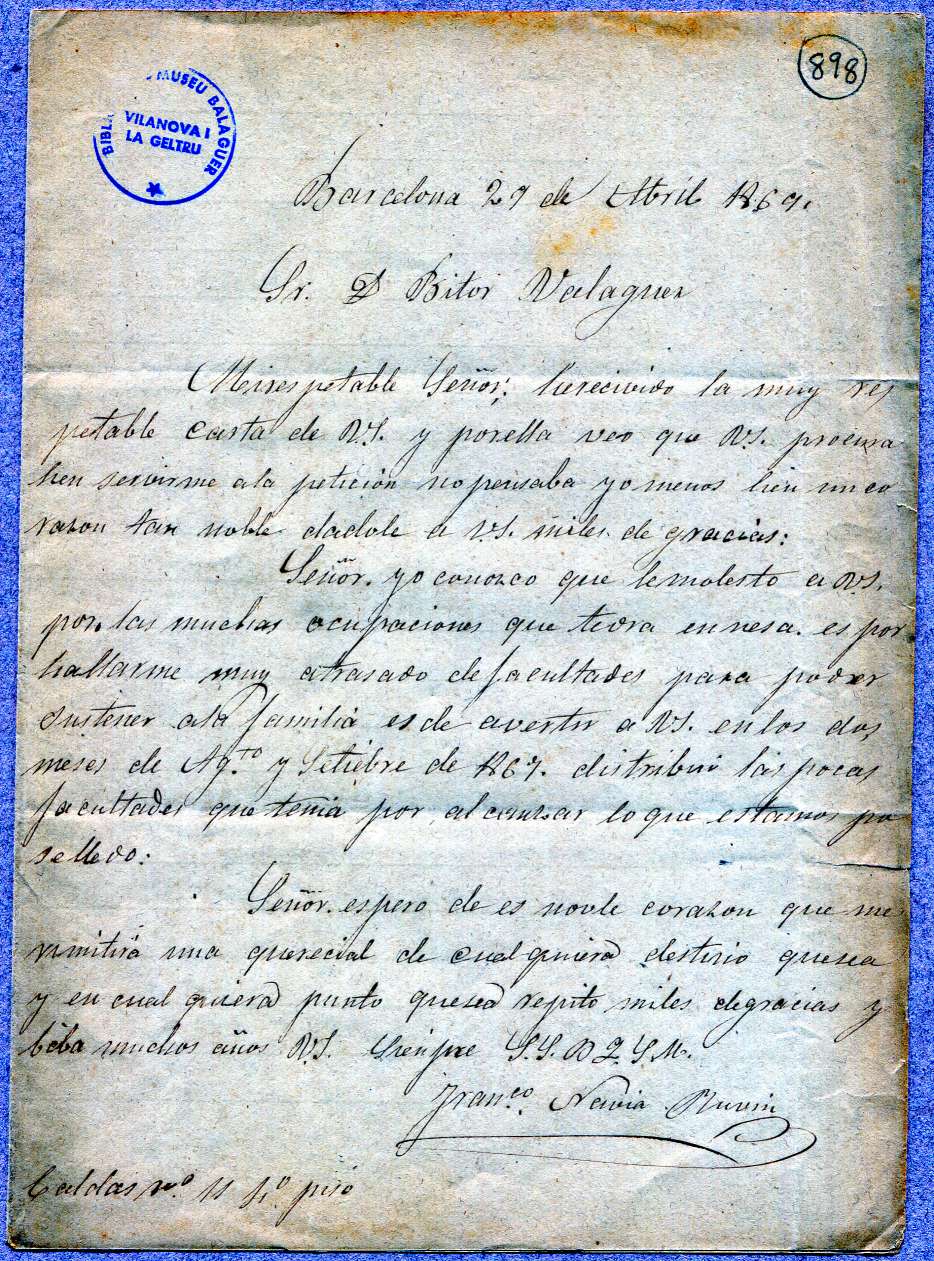 898
BIBL MUSEU BALAGUER
VILANOVA I
LA GELTRU
Barcelona 29 de Abril 1869.
Sr. D Bitor Valaguer
Mi respetable Señor: herecivido la muy res
petable carta de VS. y porella veo que VS. procura
hen servirme ala petición no pensaba yo menos hen un co
razon tan noble dadole a VS. miles de gracias:
Señor. yo conozco que lemolesto a VS.
por las muchas ocupaciones que tedra ennesa. es por
hallarme muy atrasado defacultades para poder
sustener ala familia esde avertir a VS. en los dos
meses de Ag.to y Setiebre de 1867. distribui las pocas
facultades que tenia por alcanzar lo que estamos po
selledo:
Señor. espero de es noble corazon que me
rimitirá una de cualquiera destino quesea
y en cualquiera punto quesea repito miles degracias y
biba muchos años VS. Sienpre S.S.B.Q.S.M.
Fran.co Navia Ruvin
Caldas no. 11 4o. piso